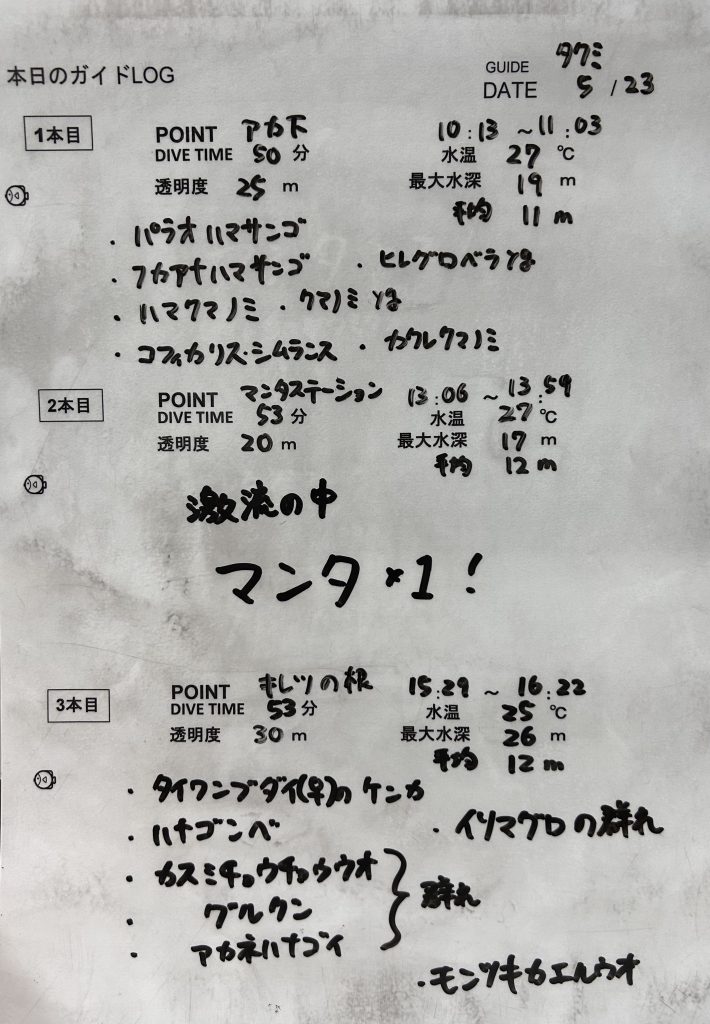 本日のガイドLOG
GUIDE タクミ
DATE 5 / 23
1本目
POINT アカ下
10:13 ~ 11:03
DIVE TIME 50 分
水温 27 ℃
透明度 25 m
最大水深 19 m
平均 11 m
・パラオハマサンゴ
・フカアナハマサンゴ ・ヒレグロベラyg
・ハマクマノミ ・クマノミyg
・コフィカリス・シムランス ・カクレクマノミ
2本目
POINT マンタステーション
13:06 ~ 13:59
DIVE TIME 53 分
水温 27 ℃
透明度 20 m
最大水深 17 m
平均 12 m
激流の中
マンタ×1!
3本目
POINT キレツの根
15:29 ~ 16:22
DIVE TIME 53 分
水温 25 ℃
透明度 30 m
最大水深 26 m
平均 12 m
・タイワンブダイ(♀)のケンカ
・ハナゴンベ ・イソマグロの群れ
・カスミチョウチョウウオ
・グルクン 群れ
・アカネハナゴイ
・モンツキカエルウオ